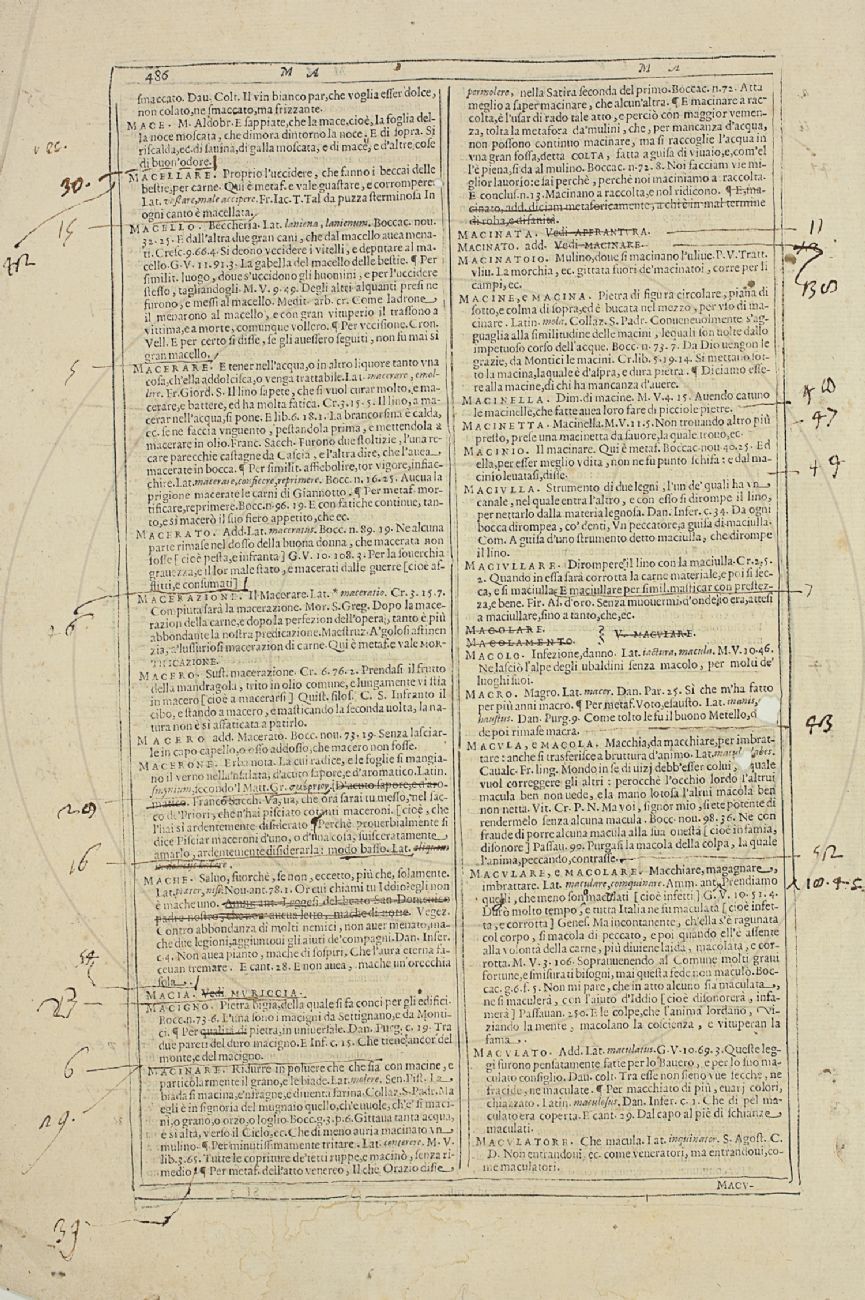 486 M A M A
smaccato. Dau. Colt. Il vin bianco par, che voglia esser dolce,
non colato, ne smaccato, ma frizzante.
MACE. M. Aldobr. E sappiate, che la mace, cioè, la foglia del-
la noce moscata, che dimora dintorno la noce. E di sopra. Si
riscalda, ec. di sauina, di galla moscata, e di mace, e d'altre, cose
di buon'odore.
MACELLARE. Proprio l'uccidere, che fanno i beccai delle
bestie, per carne. Qui è metaf. e vale guastare, e corrompere.
Lat. vastare, male accipere. Fr. Iac. T. Tal da puzza sterminosa In
ogni canto è macellata.
MACELLO. Beccheria. Lat. laniena, lanienum. Boccac. nou.
32. 25. E dall'altra due gran cani, che dal macello auea mena-
ti. Cresc. 9. 66. 4. Si deono vccidere i vitelli, e depntare al ma-
cello. G. V. 11. 91. 3. La gabella del macello delle bestie. ¶ Per
similit. luogo, doue s'uccidono gli huomini, e per l'uccidere
stesso, tagliandogli. M. V. 9. 49. Degli altri alquanti presi ne
furono, e messi al macello. Medit. arb. cr. Come ladrone
il menarono al macello, e con gran vituperio il trassono a
vittima, e a morte, comunque vollero. ¶ Per vccisione. Cron.
Vell. E per certo si disse, se gli auessero seguiti, non fu mai sì
gran macello.
MACERARE. E tener nell'acqua, o in altro liquore tanto vna
cosa, ch'ella addolcisca, o venga trattabile. Lat. macerare, emol-
lire. Fr. Giord. S. Il lino sapete, che si vuol curar molto, e ma-
cerare, e battere, ed ha molta fatica. Cr. 3. 15. 5. Il lino, a ma-
cerar nell'acqua, si pone. E lib. 6. 18. 1. La brancorsina è calda,
ec. se ne faccia vnguento, pestandola prima, e mettendola a
macerare in olio. Franc. Sacch. Furono due stoltizie, l'una re-
care parecchie castagne da Cascia, e l'altra dire, che l'auea
macerate in bocca. ¶ Per similit. affiebolire, tor vigore, infiac-
chire. Lat. macerare, conficere, reprimere. Bocc. n. 16. 25. Aucua la
prigione macerate le carni di Giannotto. ¶ Per metaf. mor-
tificare, reprimere. Bocc. n. 96. 19. E con fatiche continue, tan-
to, e sì macerò il suo fiero appetito, che ec.
MACERATO. Add. Lat. maceratus. Bocc. n. 89. 19. Ne alcuna
parte rimase nel dosso della buona donna, che macerata non
fosse [cioè pesta, e infranta] G. V. 10. 108. 3. Per la souerchia
grauezza, e il lor male stato, e macerati dalle guerre [cioè af-
flitti, e consumati]
MACERAZIONE. Il Macerare. Lat. * maceratio. Cr. 3. 15. 7.
Compiuta sarà la macerazione. Mor. S. Greg. Dopo la mace-
razion della carne, e dopo la perfezion dell'opera, tanto è più
abbondante la nostra predicazione. Maestruz. A' golosi astinen
zia, a' lussuriosi macerazion di carne. Qui è metaf. e vale MOR-
TIFICAZIONE.
MACERO. Sust. macerazione. Cr. 6. 76. 2. Prendasi il frutto
della mandragola, trito in olio comune, e lungamente vi stia
in macero [cioè a macerarsi] Quist. filos. C. S. Infranto il
cibo, e stando a macero, e masticando la seconda uolta, la na-
tura non è sì affaticata a patirlo.
MACERO add. Macerato. Bocc. nou. 73. 19. Senza lasciar-
le in capo capello, o osso addosso, che macero non fosse.
MACERONE. Erba nota. La cui radice, e le foglie si mangia-
no il verno nell'insalata, d'acuto sapore, e d'aromatico. Latin.
smyrnium, secondo 'l Matt. Gr. σμύρνιον. D'acuto sapore, e d'aro-
matico. Franco Sacch. Va, ua, che ora sarai tu messo, nel sac-
co de' Priori, che n'hai pisciato cotanti maceroni. [cioè, che
l'hai sì ardentemente disiderato ¶ Perchè prouerbialmente si
dice Pisciar maceroni d'uno, o d'una cosa, suisceratamente
amarlo, ardentemente disiderarla: modo basso. Lat.
MACHE. Saluo, fuorchè, se non, eccetto, più che, solamente.
Lat. praeter, nisi. Nou. ant. 78. 1. Or cui chiami tu Iddio? egli non
è mache uno. Amm. ant. Leggesi del beato San Domenico
padre nostro, che non auea letto, mache di notte. Vegez.
Contro abbondanza di molti nemici, non auer menato, ma-
che due legioni, aggiuntoui gli aiuti de' compagni. Dan. Infer.
c. 4. Non auea pianto, mache di sospiri, Che l'aura eterna fa-
ceuan tremare. E cant. 28. E non auea, mache un'orecchia
sola.
MACIA. Vedi MVRICCIA.
MACIGNO. Pietra bigia, della quale si fa conci per gli edifici.
Bocc. n. 73. 6. L'una sono i macigni da Settignano, e da Monti-
ci. ¶ Per qualità di pietra, in uniuersale. Dan. Purg. c. 19. Tra
due pareti del duro macigno. E Inf. c. 15. Che tiene ancor del
monte, e del macigno.
MACINARE. Ridurre in poluere che che sia con macine, e
particolarmente il grano, e le biade. Lat. molere. Sen. Pist. La
biada si macina, e n'sragne, e diuenta farina. Collaz. S. Padr. Ma
egli è in signoria del mugnaio quello, ch'e' uuole, ch'e' si maci-
ni, o grano, o orzo, o loglio. Bocc. g. 3. p. 6. Gittaua tanta acqua,
e sì alta, verso il Cielo, ec. Che di meno auria macinato vn
mulino. ¶ Per minutissimamente tritare. Lat. conterere. M. V.
lib. 3. 65. Tutte le copriture de' tetti ruppe, e macinò, senza ri-
medio. ¶ Per metaf. dell'atto venereo, Il che Orazio disse
permolere, nella Satira seconda del primo. Boccac. n. 72. Atta
meglio a saper macinare, che alcun'altra. ¶ E macinare a rac-
colta, è l'usar di rado tale atto, e perciò con maggior vemen-
za, tolta la metafora da' mulini, che, per mancanza d'acqua,
non possono continuo macinare, ma si raccoglie l'acqua in
vna gran fossa, detta COLTA, fatta a guisa di viuaio, e, com'el
l'è piena, si dà al mulino. Boccac. n. 72. 8. Noi facciam vie mi-
glior lauorio: e sai perchè, perchè noi maciniamo a raccolta.
E conclus. n. 13. Macinano a raccolta, e nol ridicono. ¶ E, ma-
cinato, add. diciam metaforicamente, a chi è in mal termine
di roba, e di sanità.
MACINATA. Vedi AFFRANTVRA.
MACINATO. add. Vedi MACINARE.
MACINATOIO. Mulino, doue si macinano l'uliue. P. V. Tratt.
vliu. La morchia, ec. gittata fuori de' macinatoi, corre per li
campi, ec.
MACINE, e MACINA. Pietra di figura circolare, piana di
sotto, e colma di sopra, ed è bucata nel mezzo, per vso di ma-
cinare. Latin. mola. Collaz. S. Padr. Conueneuolmente s'ag-
guaglia alla similitudine delle macini, le quali son uolte dallo
impetuoso corso dell'acque. Bocc. n. 73. 7. Da Dio uengon le
grazie, da Montici le macini. Cr. lib. 5. 19. 14. Si mettano sot-
to la macina, la quale è d'aspra, e dura pietra. ¶ Diciamo esse-
re alla macine, di chi ha mancanza d'auere.
MACINELLA. Dim. di macine. M. V. 4. 15. Auendo catuno
le macinelle, che fatte auea loro fare di picciole pietre.
MACINETTA. Macinella. M. V. 11. 5. Non trouando altro più
presto, prese una macinetta da sauore, la quale trouò, ec.
MACINIO. Il macinare. Qui è metaf. Boccac. nou. 40. 25. Ed
ella, per esser meglio vdita, non ne fu punto schifa: e dal ma-
cinio leuatasi, disse.
MACIVLLA. Strumento di due legni, l'un de' quali ha vn
canale, nel quale entra l'altro, e con esso si dirompe il lino,
per nettarlo dalla materia legnosa. Dan. Infer. c. 34. Da ogni
bocca dirompea, co' denti, Vn peccatore, a guisa di maciulla.
Com. A guisa d'uno strumento detto maciulla, che dirompe
il lino.
MACIVLLARE. Dirompere il lino con la maciulla. Cr. 2. 5.
2. Quando in essa sarà corrotta la carne materiale, e poi si sec-
ca, e si maciulla. E maciullare per simil. masticar con prestez-
za, e bene. Fir. As. d'oro. Senza muouermi, d'ond'io era, attesi
a maciullare, sino a tanto, che, ec.
MACOLARE.
MACOLAMENTO. } V. MACVLARE.
MACOLO. Infezione, danno. Lat. iactura, macula. M. V. 10. 46.
Ne lasciò l'alpe degli ubaldini senza macolo, per molti de'
luoghi suoi.
MACRO. Magro. Lat. macer. Dan. Par. 25. Sì che m'ha fatto
per più anni macro. ¶ Per metaf. Voto, esausto. Lat. inanis,
haustus. Dan. Purg. 9. Come tolto le fu il buono Metello,
de poi rimase macra.
MACVLA, e MACOLA. Macchia, da macchiare, per imbrat-
tare: anche si trasferisce a bruttura d'animo. Lat. macula, labes.
Caualc. Fr. ling. Mondo in se di uizj debb'esser colui, quale
vuol correggere gli altri: perocchè l'occhio lordo l'altrui
macula ben non uede, e la mano lotosa l'almi macola ben
non netta. Vit. Cr. P. N. Ma voi, signor mio, siete potente di
rendermelo senza alcuna macula. Bocc. nou. 98. 36. Ne con
fraude di porre alcuna macula alla sua onestà [cioè infamia,
disonore] Passau. 99. Purgasi la macola della colpa, la quale
l'anima, peccando, contrasse.
MACVLARE, e MACOLARE. Macchiare, magagnare,
imbrattare. Lat. maculare, conquinare. Amm. ant. Prendiamo
quegli, che meno son maculati [cioè infetti] G. V. 10. 51. 4.
Durò molto tempo, e tutta Italia ne fu maculata [cioè infet-
ta, e corrotta] Genes. Ma incontanente, ch'ella s'è ragunata
col corpo, si macola di peccato, e poi quando ell'è assente
alla volontà della carne, più diuiene laida, macolata, e cor-
rotta. M. V. 3. 106. Soprauuenendo al Comune molti graui
fortune, e smisurati bisogni, mai questa fede non maculò. Boc-
cac. g. 6. f. 5. Non mi pare, che in atto alcuno sia maculata,
ne si maculerà, con l'aiuto d'Iddio [cioè disonorerà, infa-
merà] Passauan. 250. E le colpe, che l'anima lordano, vi-
ziando la mente, macolano la coscienza, e vituperan la
fama.
MACVLATO. Add. Lat. maculatus. G. V. 10. 69. 3. Queste leg-
gi furono pensatamente fatte per lo Bauero, e per lo suo ma-
culato consiglio. Dan. colt. Tra esse non sieno vue secche, ne
fracide, ne maculate. ¶ Per macchiato di più, euarj colori,
chiazzato. Latin. maculosus. Dan. Infer. c. 1. Che di pel ma-
culato era coperta. E cant. 29. Dal capo al piè di schianze
maculati.
MACVLATORE. Che macula. Lat. inquinator. S. Agost. C.
D. Non entrandoui, ec. come veneratori, ma entrandoui, co-
me maculatori.
MACV-
30.
15
5
16
23
6
29
39
11
138
47
49
7
43
52